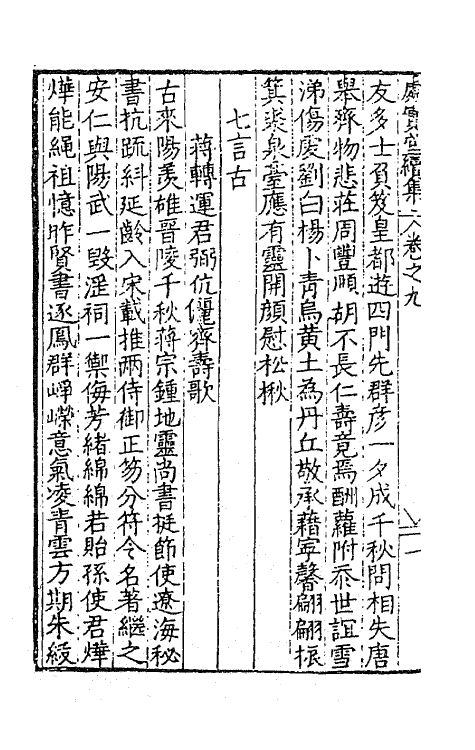 處實堂續集 卷之九
友多士負笈皇都遊四門先群彦一夕成千秋問相失唐
舉齊物悲莊周豐順胡不長仁壽竟焉酬蘿附忝世誼雪
涕傷虔劉白楊卜青烏黄土為丹丘敬承藉寧馨翩翩振
箕裘泉臺應有靈開顔慰松楸
七言古
蔣轉運君弼伉儷齊壽歌
古來陽羨雄晉陵千秋蔣宗鍾地靈尚書挺節使遼海秘
書抗疏糾延齡入宋載推兩侍御正笏分符令名著繼之
安仁與陽武一毁淫祠一禦侮芳緒綿綿若貽孫使君燁
燁能繩祖憶昨賢書逐鳳群崢嶸意氣凌青雲方期朱綬